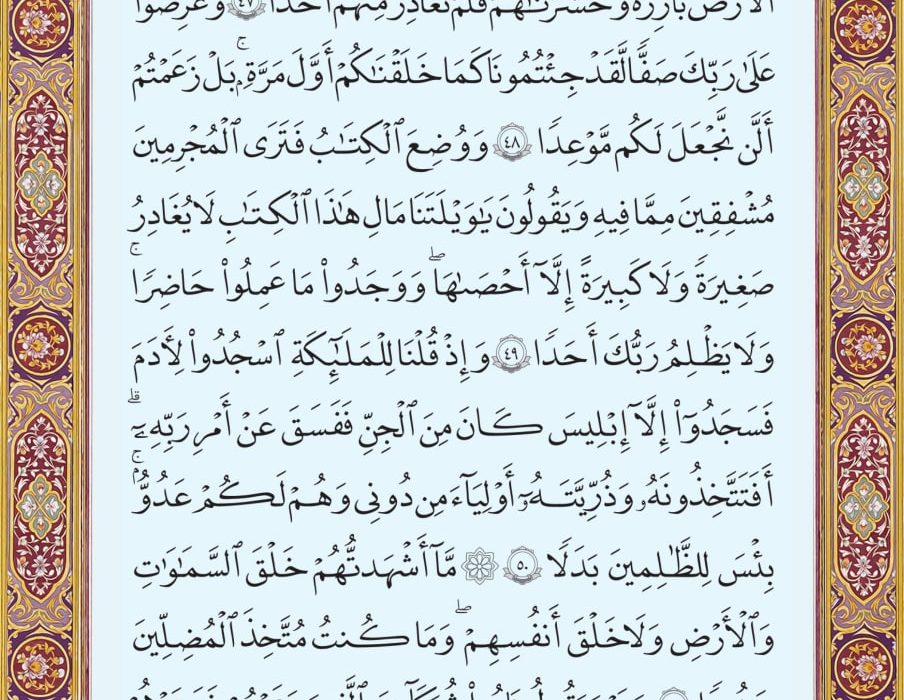 ٱلۡأَرۡضَ بَارِزَةٗ وَحَشَرۡنَٰهُمۡ فَلَمۡ نُغَادِرۡ مِنۡهُمۡ أَحَدٗا ٤٧ وَعُرِضُواْ
عَلَىٰ رَبِّكَ صَفّٗا لَّقَدۡ جِئۡتُمُونَا كَمَا خَلَقۡنَٰكُمۡ أَوَّلَ مَرَّةِۭۚ بَلۡ زَعَمۡتُمۡ
أَلَّن نَّجۡعَلَ لَكُم مَّوۡعِدٗا ٤٨ وَوُضِعَ ٱلۡكِتَٰبُ فَتَرَى ٱلۡمُجۡرِمِينَ
مُشۡفِقِينَ مِمَّا فِيهِ وَيَقُولُونَ يَٰوَيۡلَتَنَا مَالِ هَٰذَا ٱلۡكِتَٰبِ لَا يُغَادِرُ
صَغِيرَةٗ وَلَا كَبِيرَةً إِلَّآ أَحۡصَىٰهَاۖ وَوَجَدُواْ مَا عَمِلُواْ حَاضِرٗاۗ
وَلَا يَظۡلِمُ رَبُّكَ أَحَدٗا ٤٩ وَإِذۡ قُلۡنَا لِلۡمَلَٰٓئِكَةِ ٱسۡجُدُواْ لِأٓدَمَ
فَسَجَدُوٓاْ إِلَّآ إِبۡلِيسَ كَانَ مِنَ ٱلۡجِنِّ فَفَسَقَ عَنۡ أَمۡرِ رَبِّهِۦٓۗ
أَفَتَتَّخِذُونَهُۥ وَذُرِّيَّتَهُۥٓ أَوۡلِيَآءَ مِن دُونِي وَهُمۡ لَكُمۡ عَدُوُّۢۚ
بِئۡسَ لِلظَّٰلِمِينَ بَدَلٗا ٥٠ ۞ مَّآ أَشۡهَدتُّهُمۡ خَلۡقَ ٱلسَّمَٰوَٰتِ
وَٱلۡأَرۡضِ وَلَا خَلۡقَ أَنفُسِهِمۡۖ وَمَا كُنتُ مُتَّخِذَ ٱلۡمُضِلِّينَ